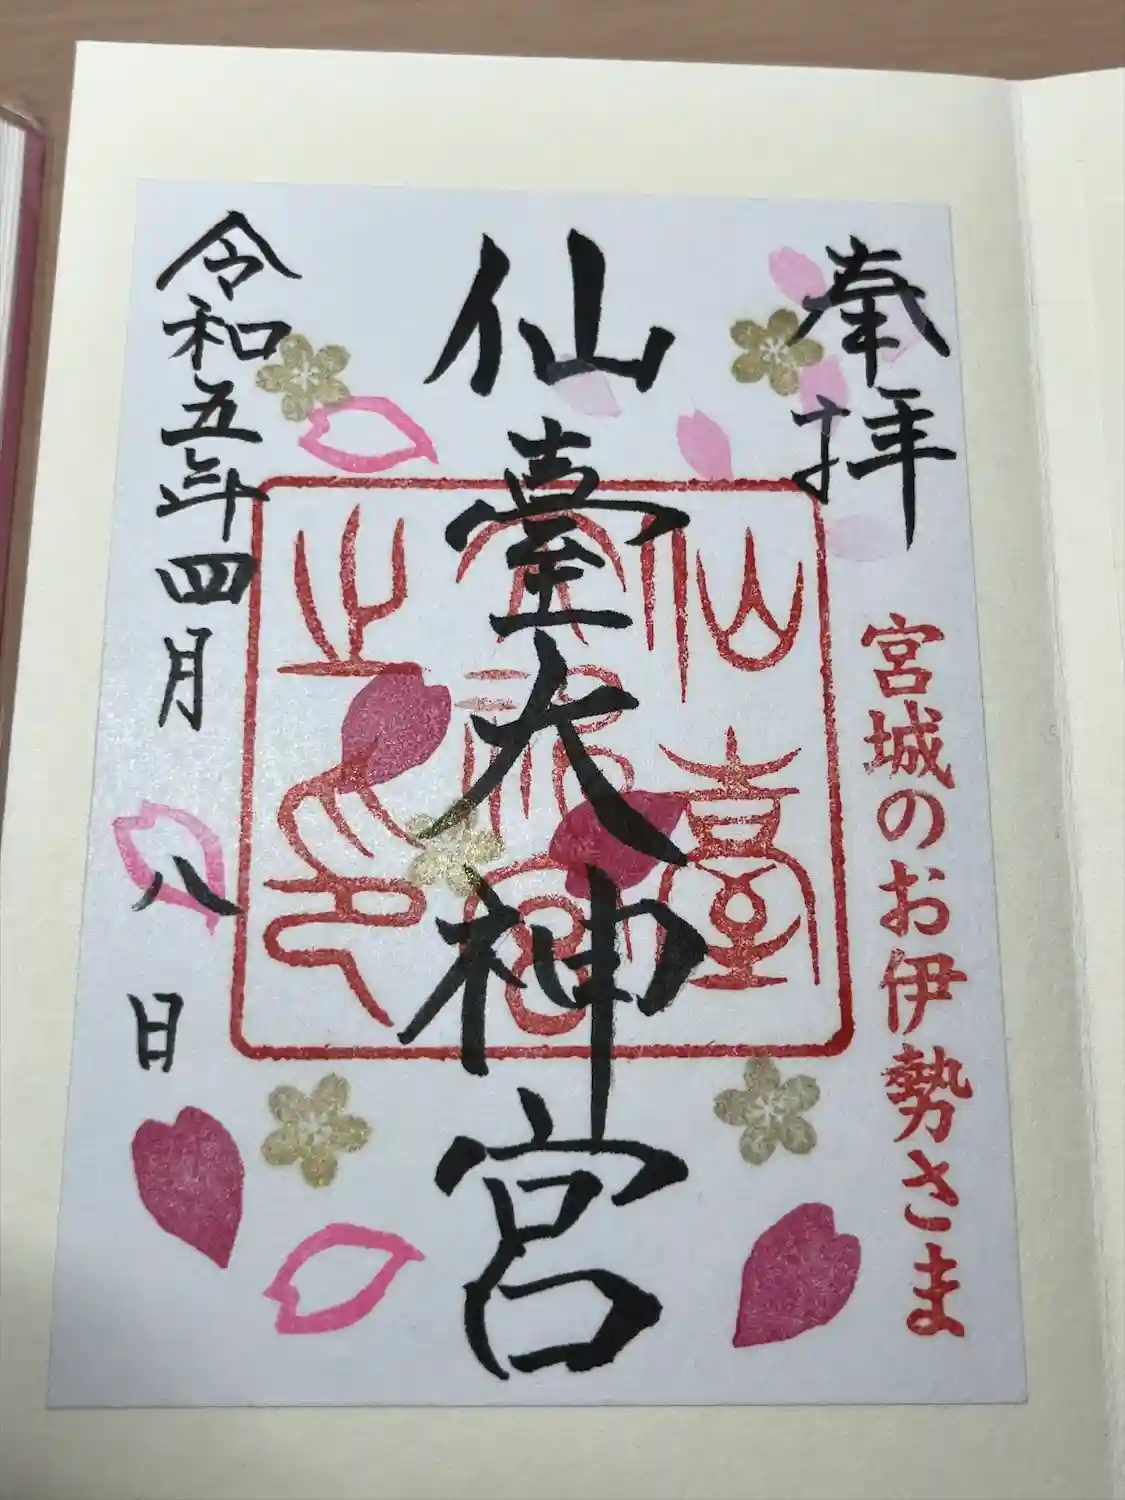 奉拝
宮城のお伊勢さま
仙臺大神宮
仙臺
大神宮
之印
令和五年四月八日